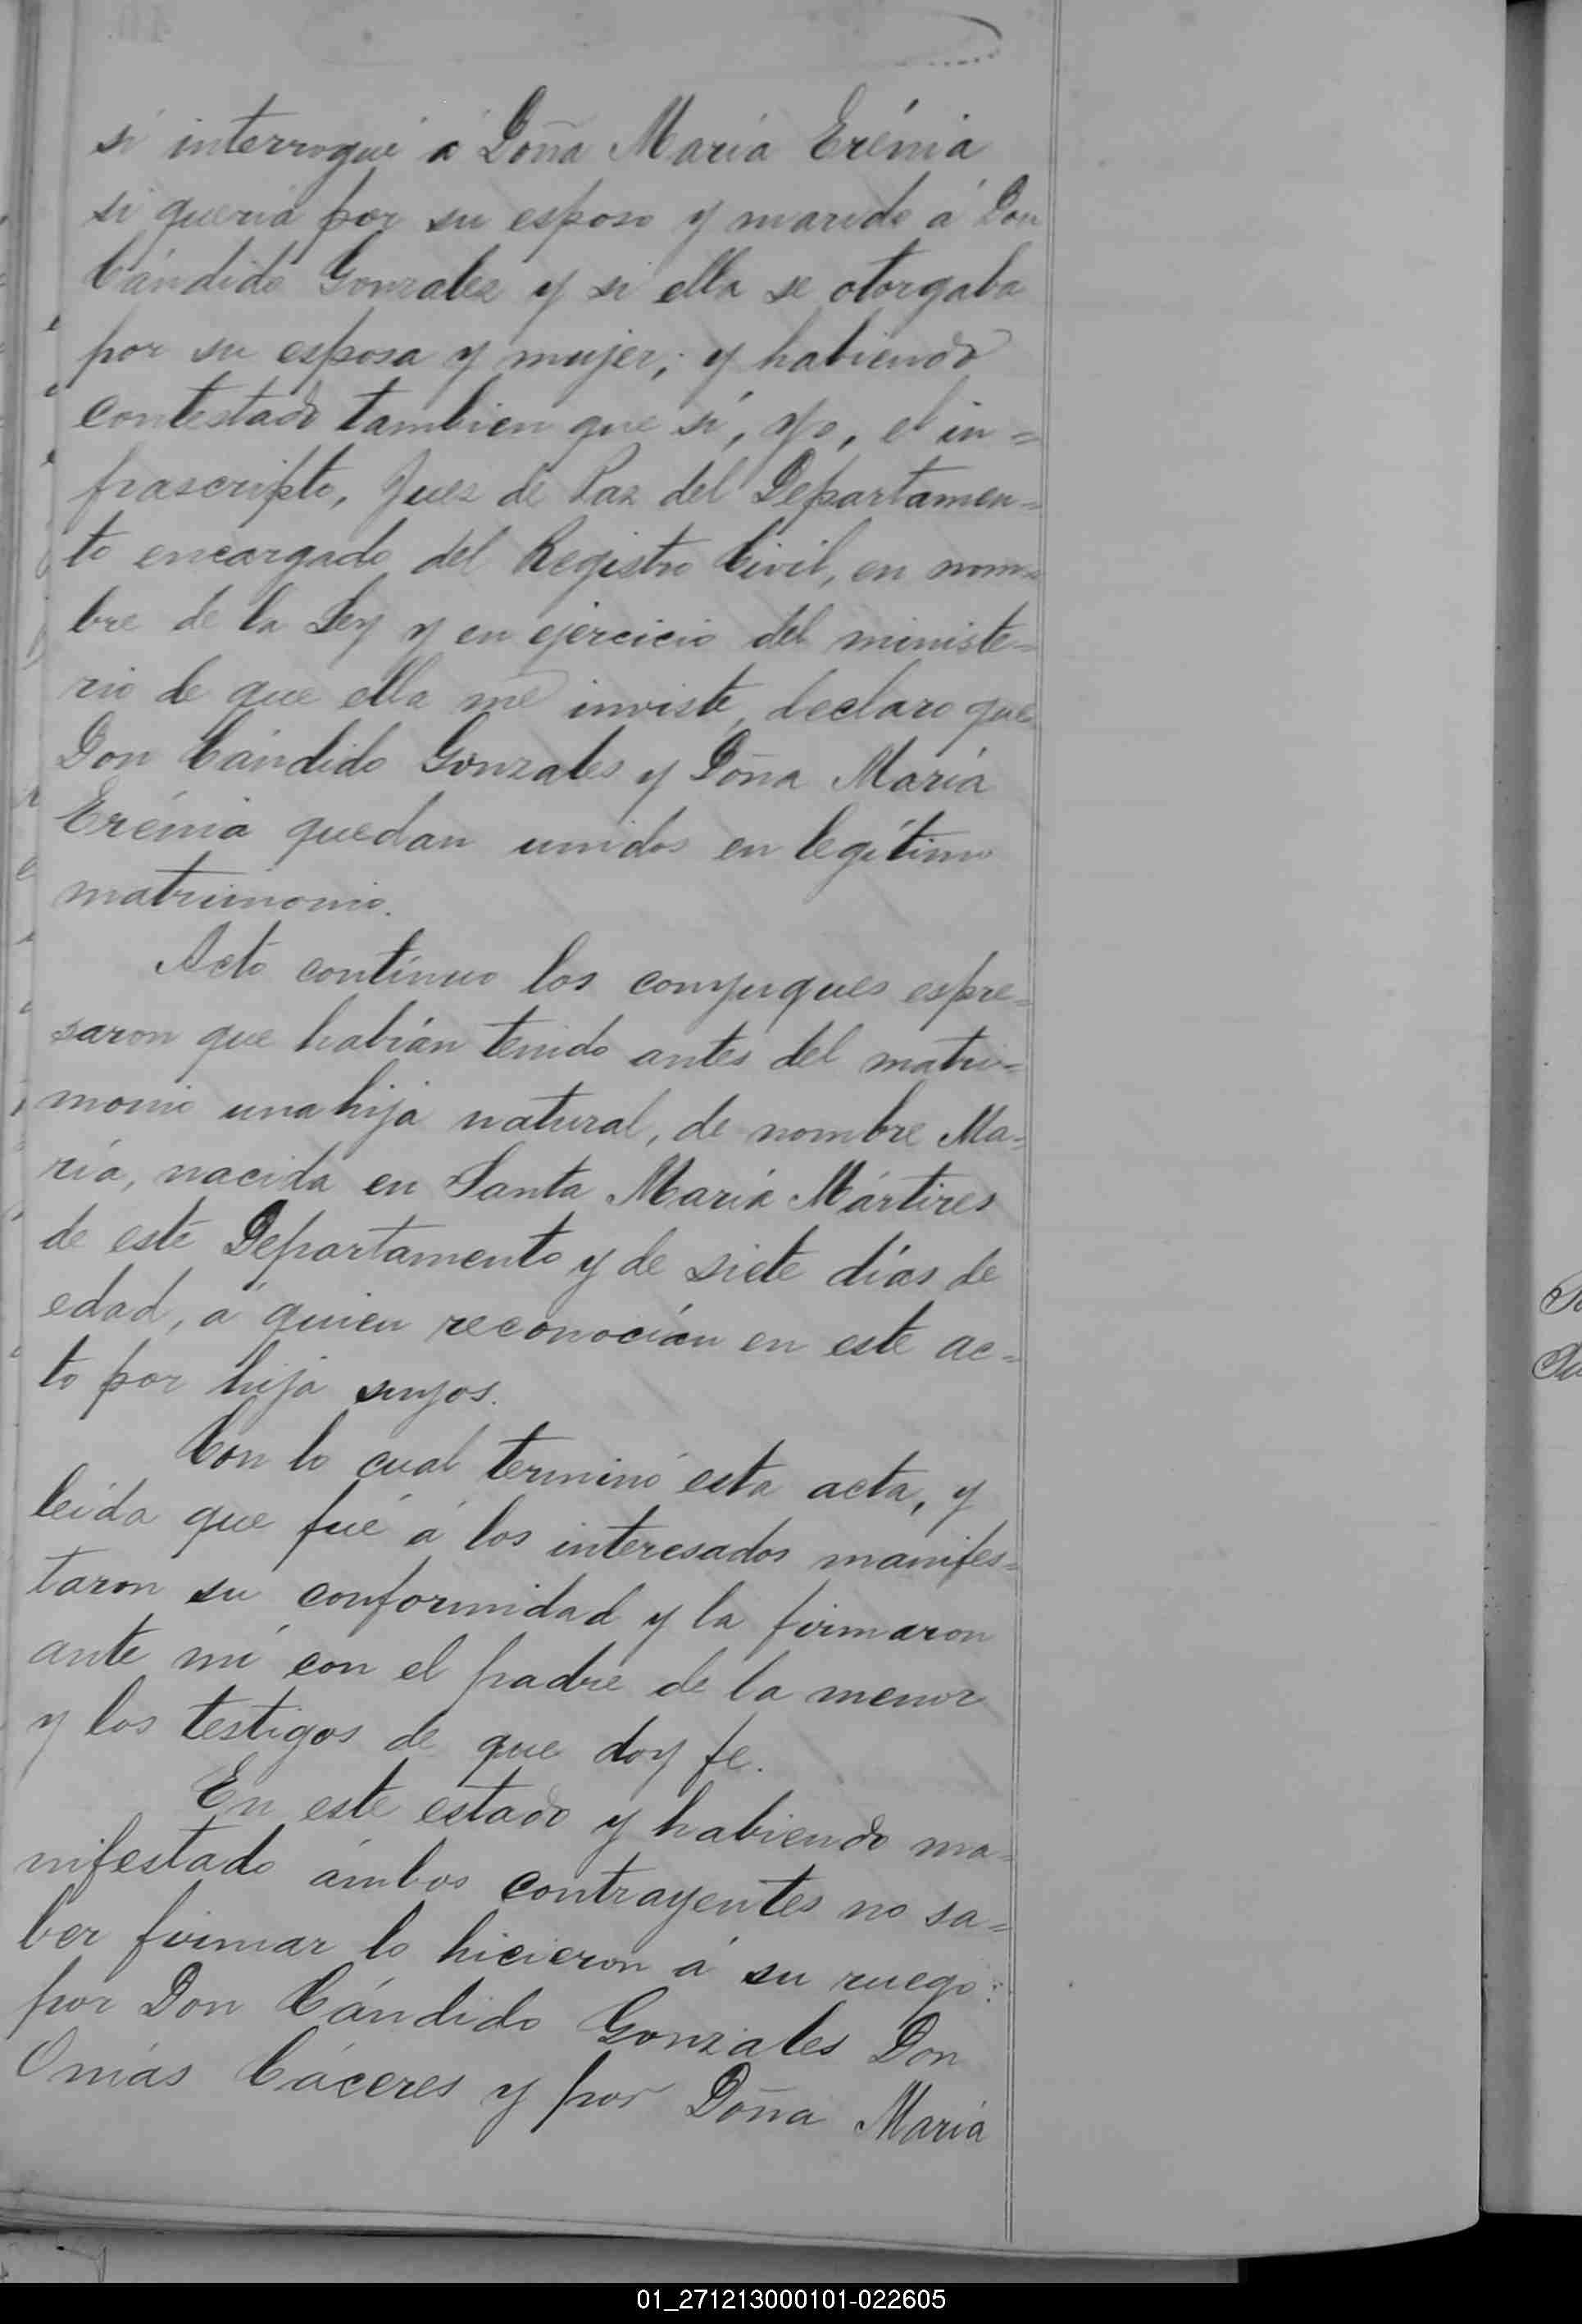 si interrogué á Doña María Erémia
si queria por su esposo y marido á Don
Cándido Gonzales y si ella se otorgaba
por su esposa y mujer; y habiendo
contestado tambien que sí, yo, el in=
frascripto, Juez de Paz del Departamen=
to encargado del Registro Civil, en nom=
bre de la Ley y en ejercicio del ministe=
rio de que ella me inviste, declaro que
Don Cándido Gonzales y Doña María
Erémia quedan unidos en legítimo
matrimonio.
Acto contínuo los conyugues espre=
saron que habían tenido antes del matri=
monio una hija natural, de nombre Ma=
ría, nacida en Santa María Mártires
de este Departamento y de siete días de
edad, á quien reconocían en este ac=
to por hija suyos.
Con lo cual terminó esta acta, y
leída que fué á los interesados manifes=
taron su conformidad y la firmaron
ante mí con el padre de la menor
y los testigos de que doy fe.
En este estado y habiendo ma=
nifestado ámbos contrayentes no sa=
ber firmar lo hicieron á su ruego:
por Don Cándido Gonzales Don
Onías Cáceres y por Doña María
01_271213000101-022605